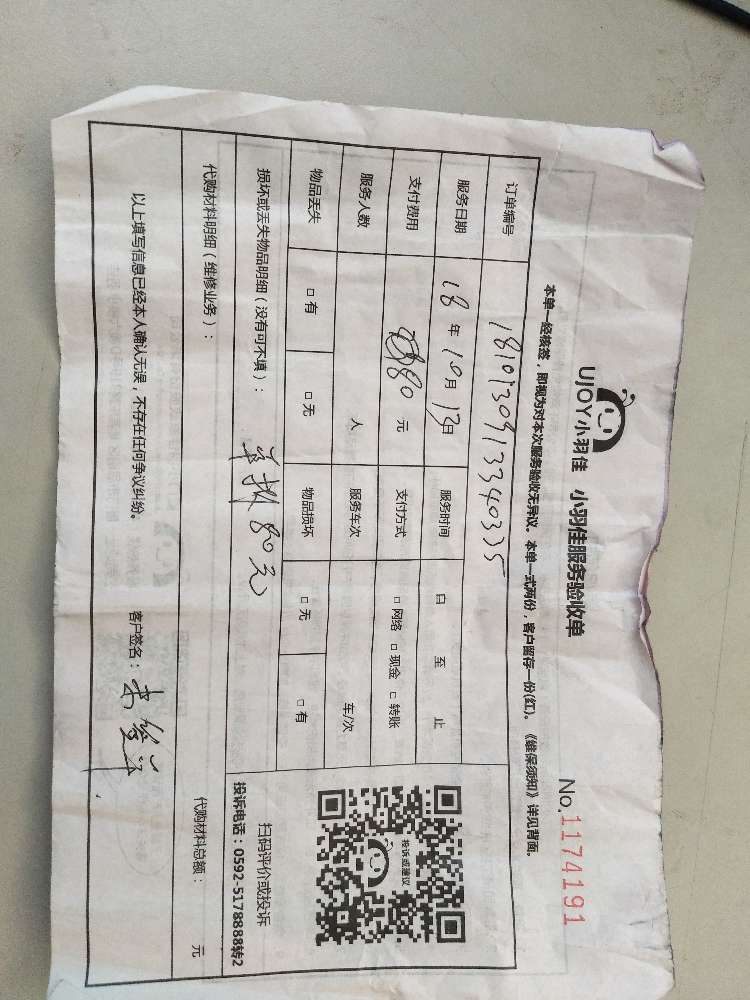 UJOY小羽佳 小羽佳服务验收单 No.1174191
本单一经核签,即视为对本次服务验收无异议。本单一式两份,客户留存一份(红)。《维保须知》详见背面。
订单编号 18101309133340335
服务日期 18年10月13日 服务时间 自 至 止
支付费用 80元 支付方式 □网络 □现金 □转账
服务人数 人 服务车次 车/次
物品丢失 □有 □无 物品损坏 □无 □有
投诉或建议
扫码评价或投诉
投诉电话:0592-5178888转2
损坏或丢失物品明细(没有可不填): 80元
代购材料明细(维修业务): 代购材料总额: 元
以上填写信息已经本人确认无误,不存在任何争议纠纷。 客户签名: